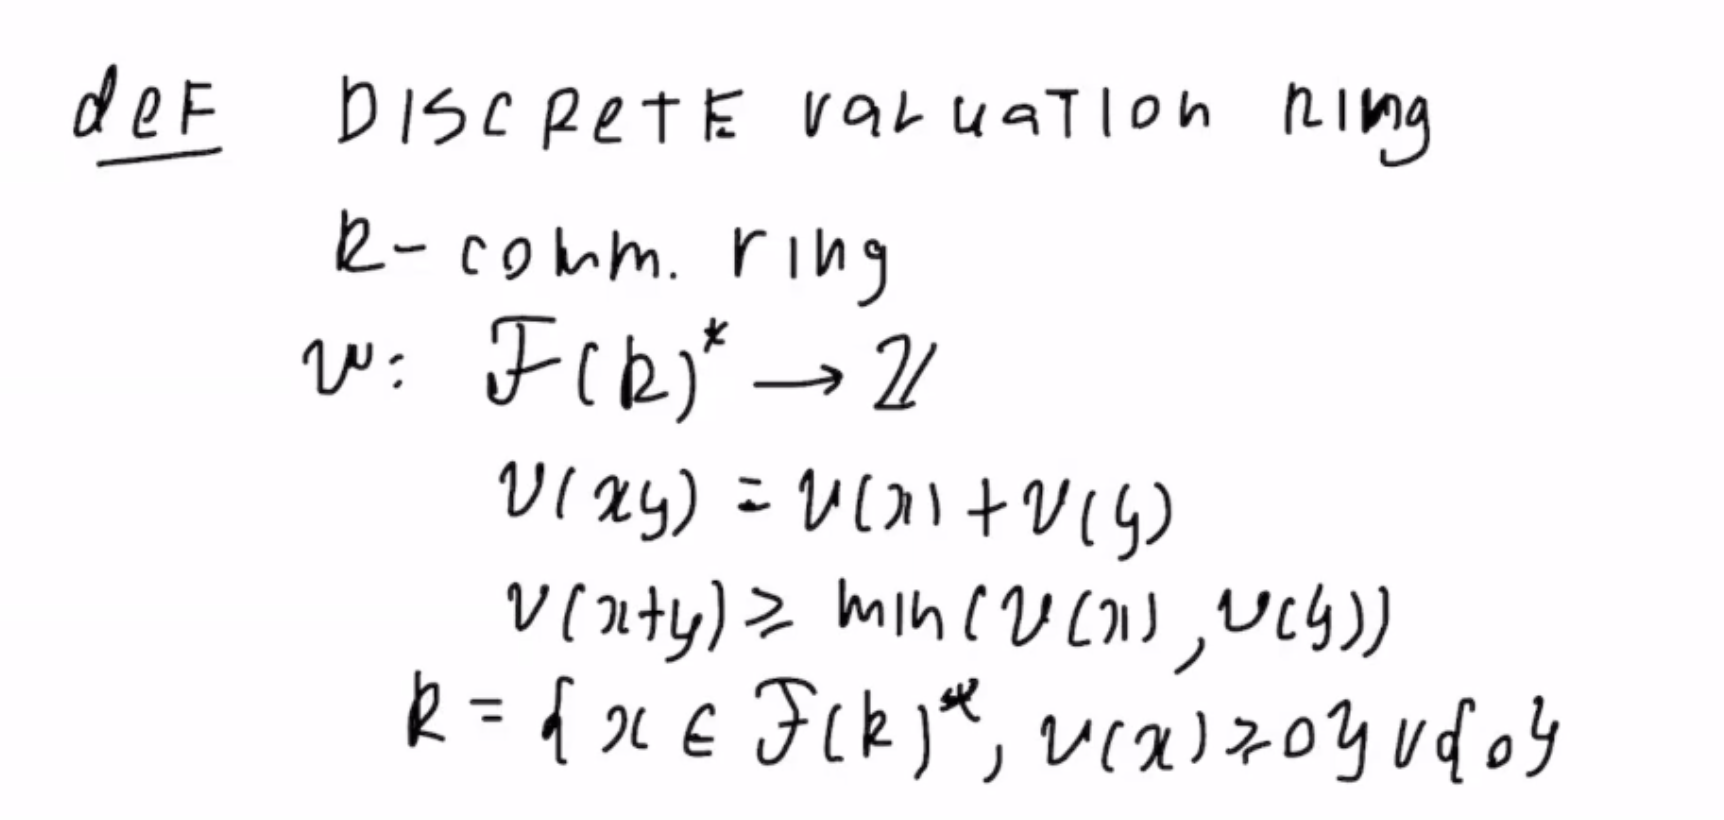 def Discrete valuation ring
R - comm. ring
v: F(R)* → ℤ
v(xy) = v(x) + v(y)
v(x+y) ≥ min(v(x), v(y))
R = {x ∈ F(R)*, v(x) ≥ 0} ∪ {0}